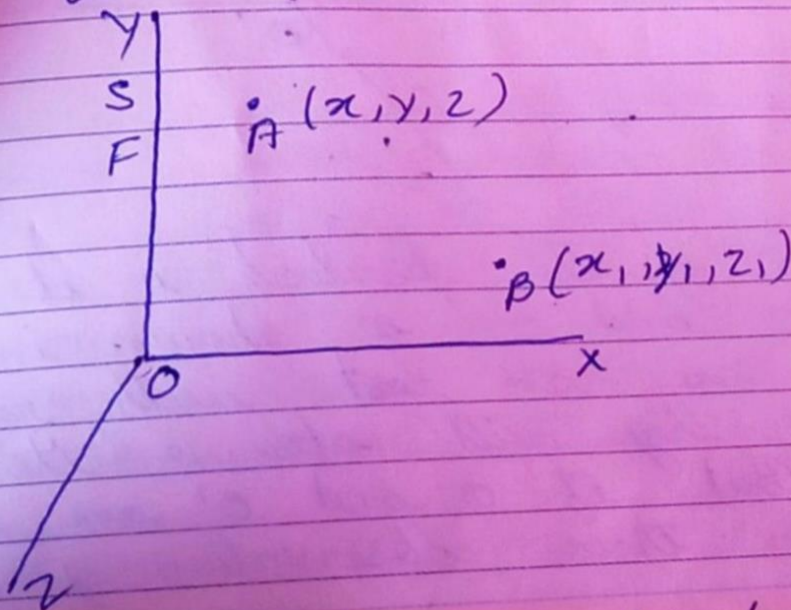 Y
S
F
A (x, y, z)
B (x₁, y₁, z₁)
O
X
Z